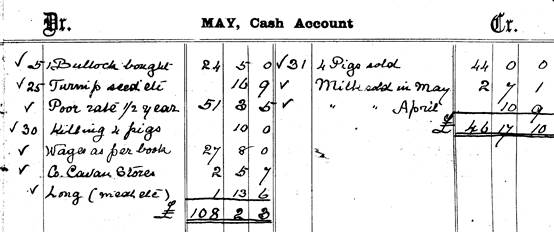 Dr. MAY, Cash Account Cr.
✓ 5 1 Bullock bought 24 5 0 ✓ 31 4 Pigs sold 44 0 0
✓ 25 Turnip seed etc 16 9 ✓ Milk sold in May 2 7 1
✓ Poor rate 1/2 year 51 3 5 ✓ " " April 10 9
✓ 30 Killing 4 pigs 10 0 £ 46 17 10
✓ Wages as per book 27 8 0
✓ Co. Cavan Stores 2 5 7
✓ Long (meal etc) 1 13 6
£ 108 2 3